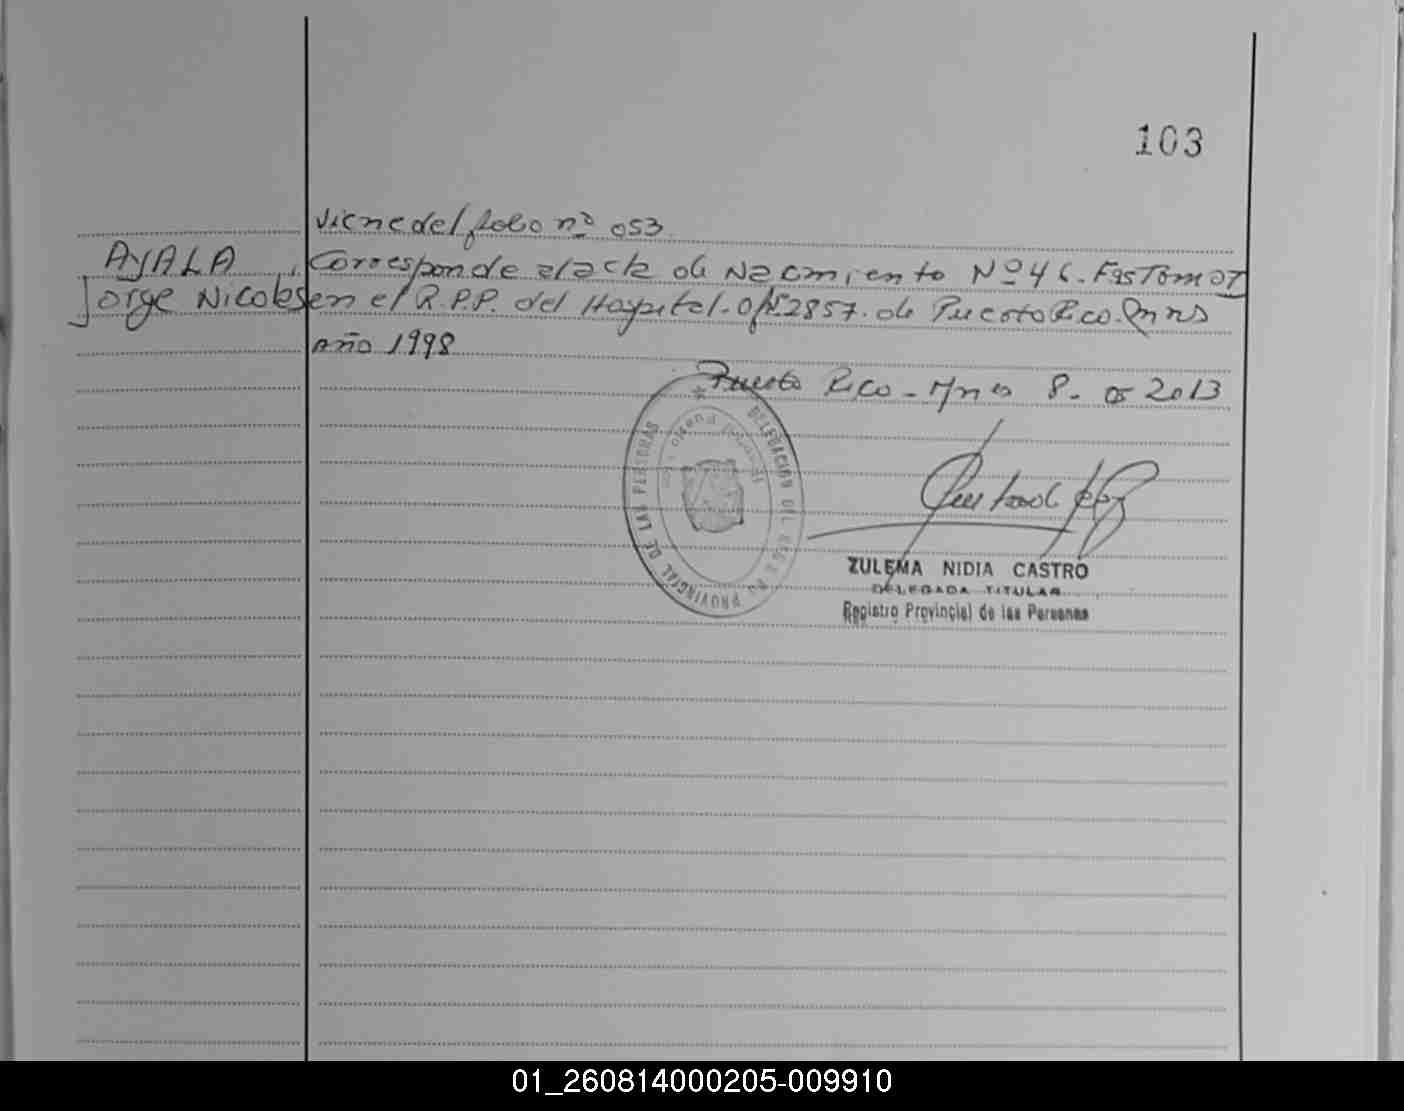 103
viene del folio nº 053.
AYALA, Corresponde al acta de Nacimiento Nº 46. F 28 Tomo I
Jorge Nicolas en el R.P.P. del Hospital. Of. 2857. de Puerto Rico. Mnes
año 1998
Puerto Rico - Mnes 8. 05 2013
DELEGACION DEL REG PROVINCIAL DE LAS PERSONAS
ZULEMA NIDIA CASTRO
DELEGADA TITULAR
Registro Provincial de las Personas
01_260814000205-009910